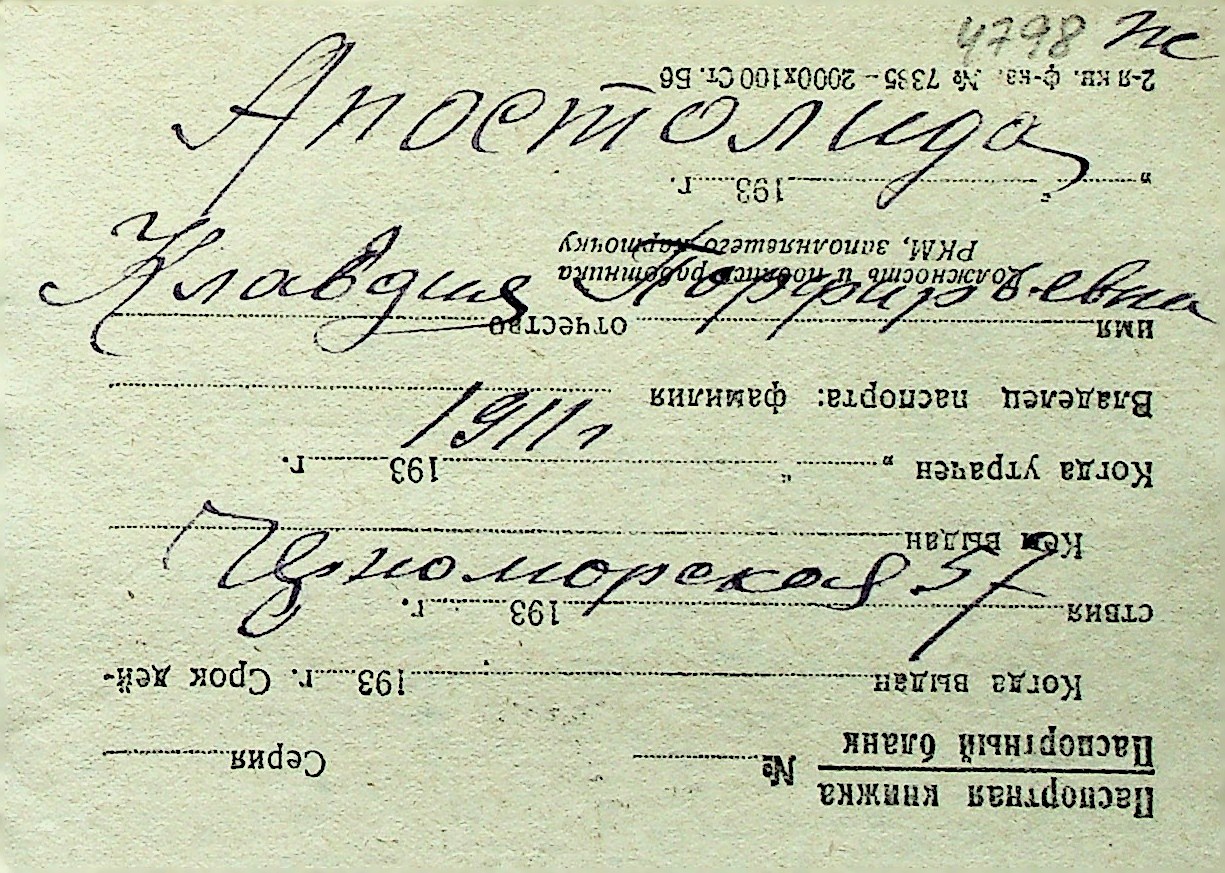 4798
Апостолида
Клавдия Порфирьевна
1911 г
Черноморская 57
Паспортная книжка
Паспортный бланк
№ Серия
Когда выдан 193 г. Срок дей-
ствия 193 г.
Кем выдан
Когда утрачен „ " 193 г.
Владелец паспорта: фамилия
имя отчество
Должность и подпись работника
РКМ, заполнявшего карточку
„ " 193 г.
2-я кн. ф-ка. № 7335 – 2000х100 Ст. Бб